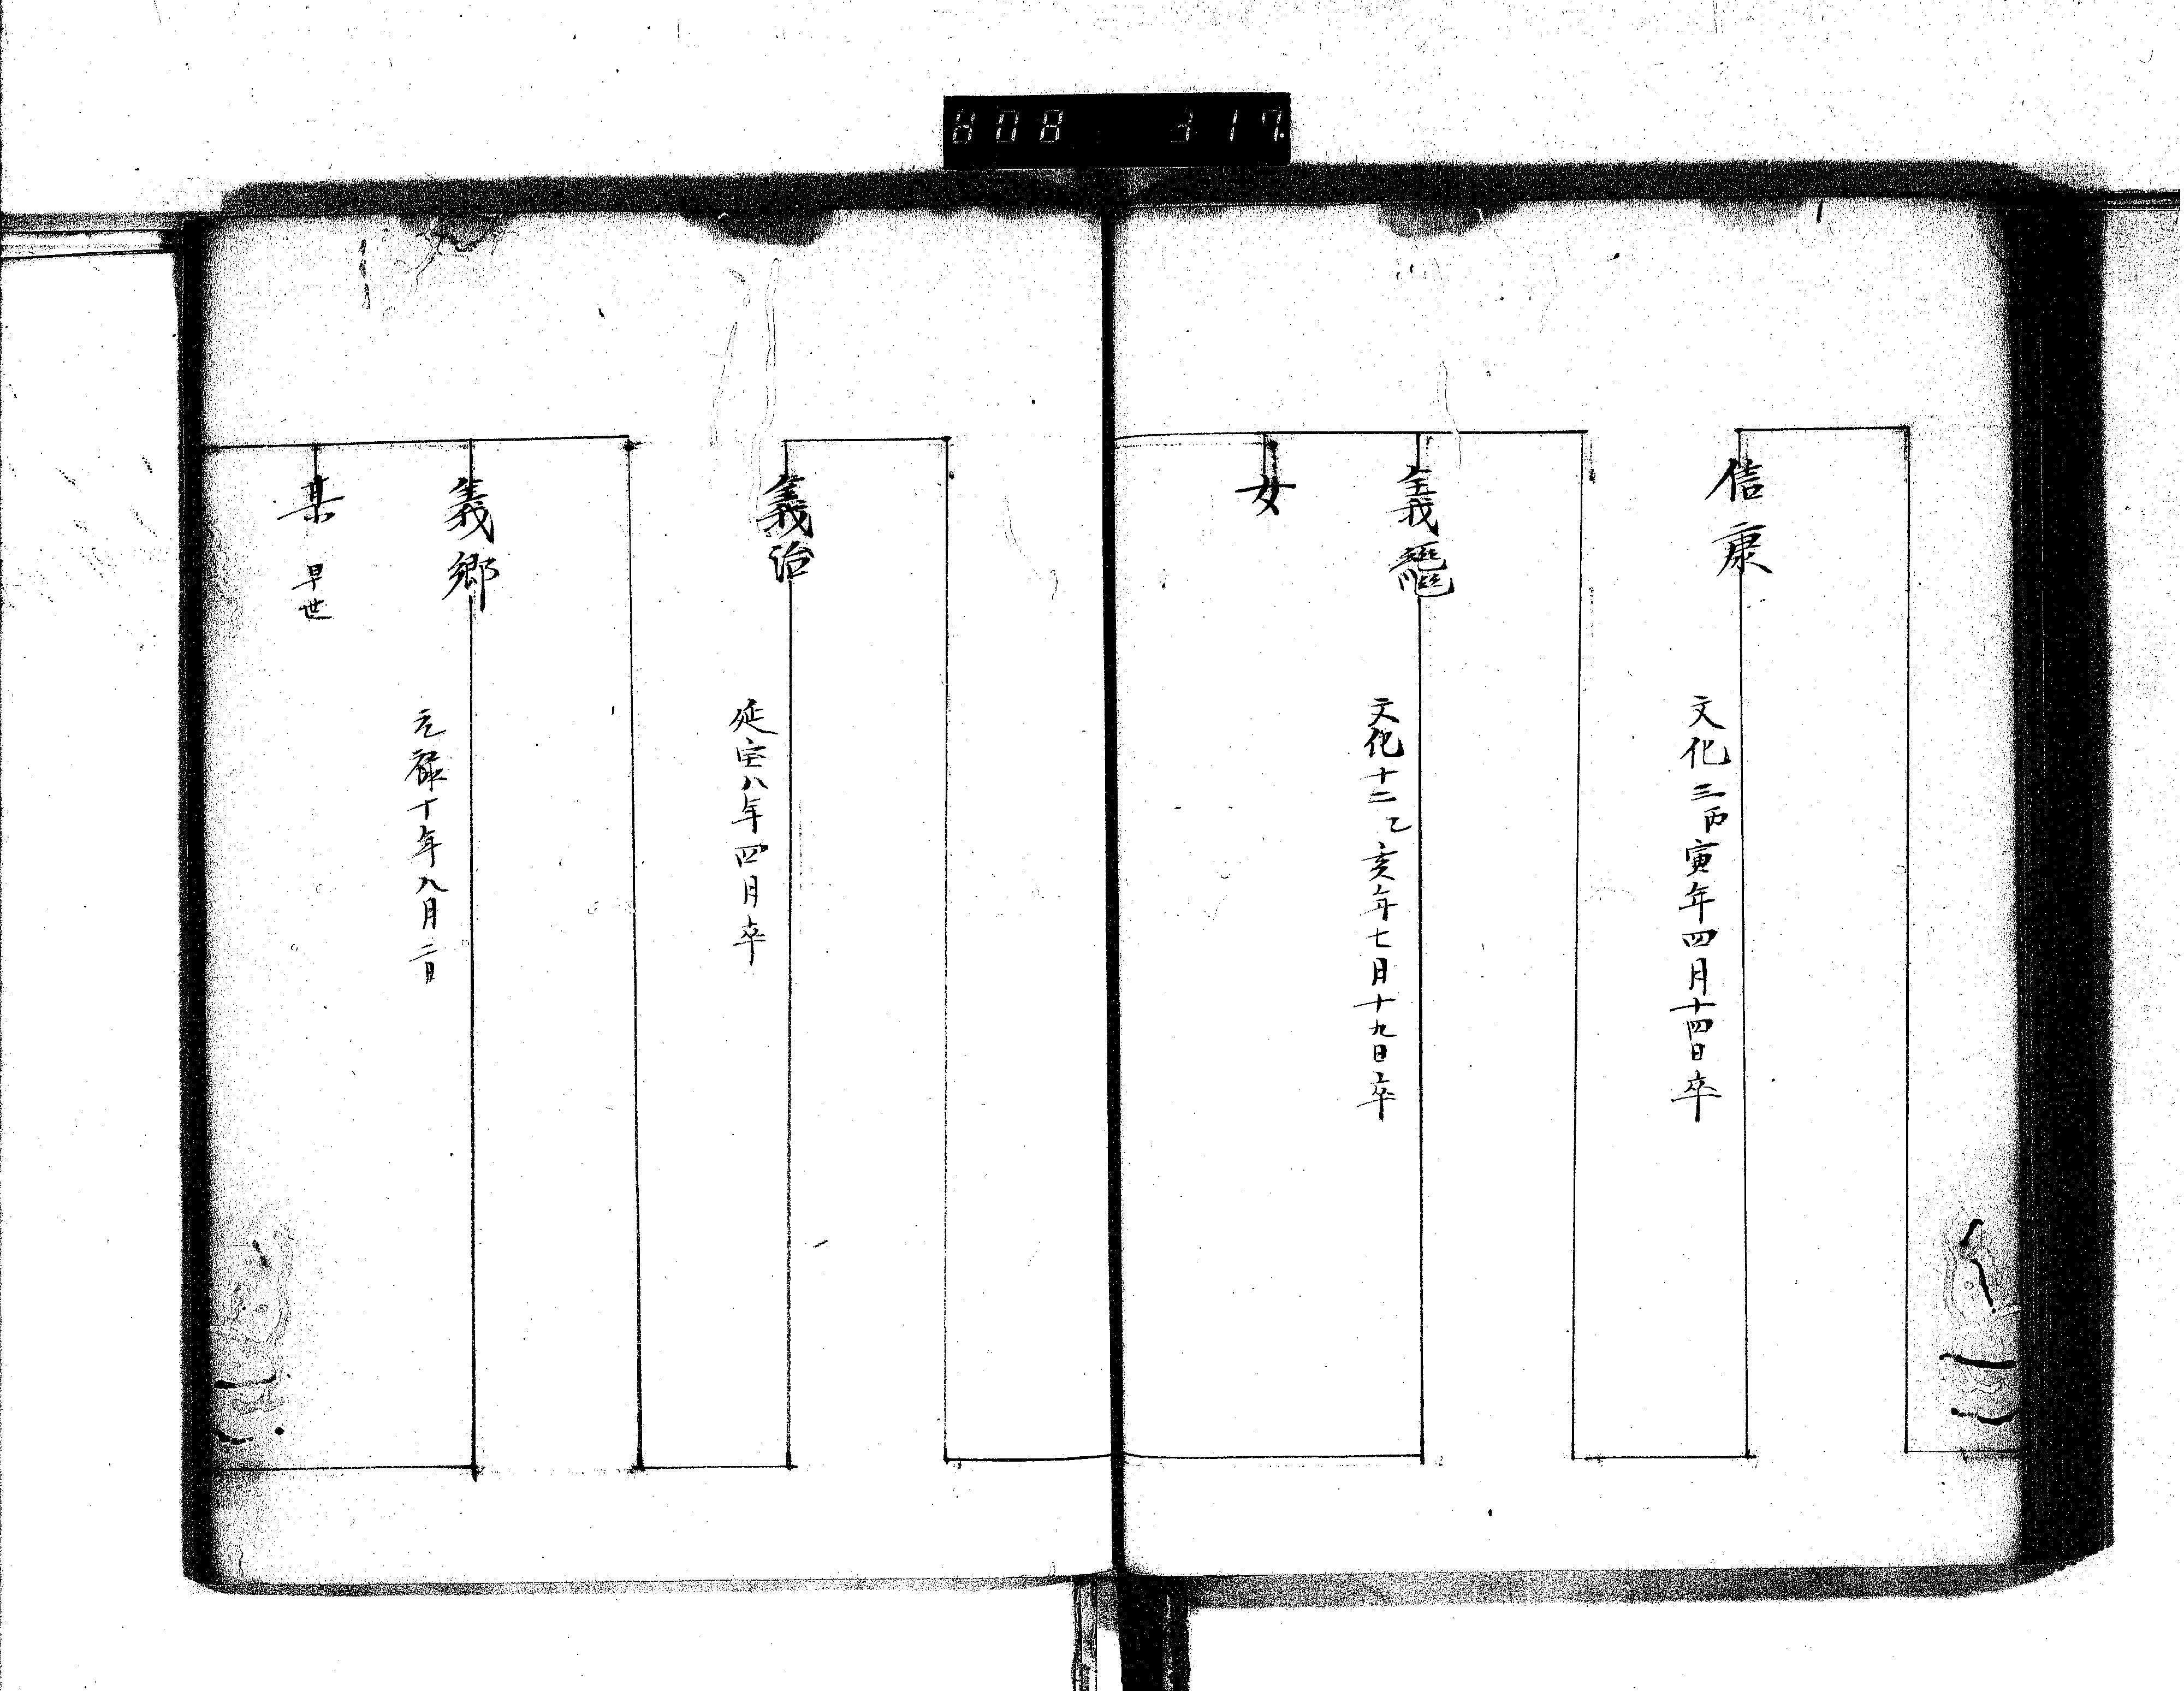 808 317
信康
文化三丙寅年四月十四日卒
義繼
文化十二乙亥年七月十九日卒
女
義治
延宝八年四月卒
義郷
元禄十年八月二日
某 早世